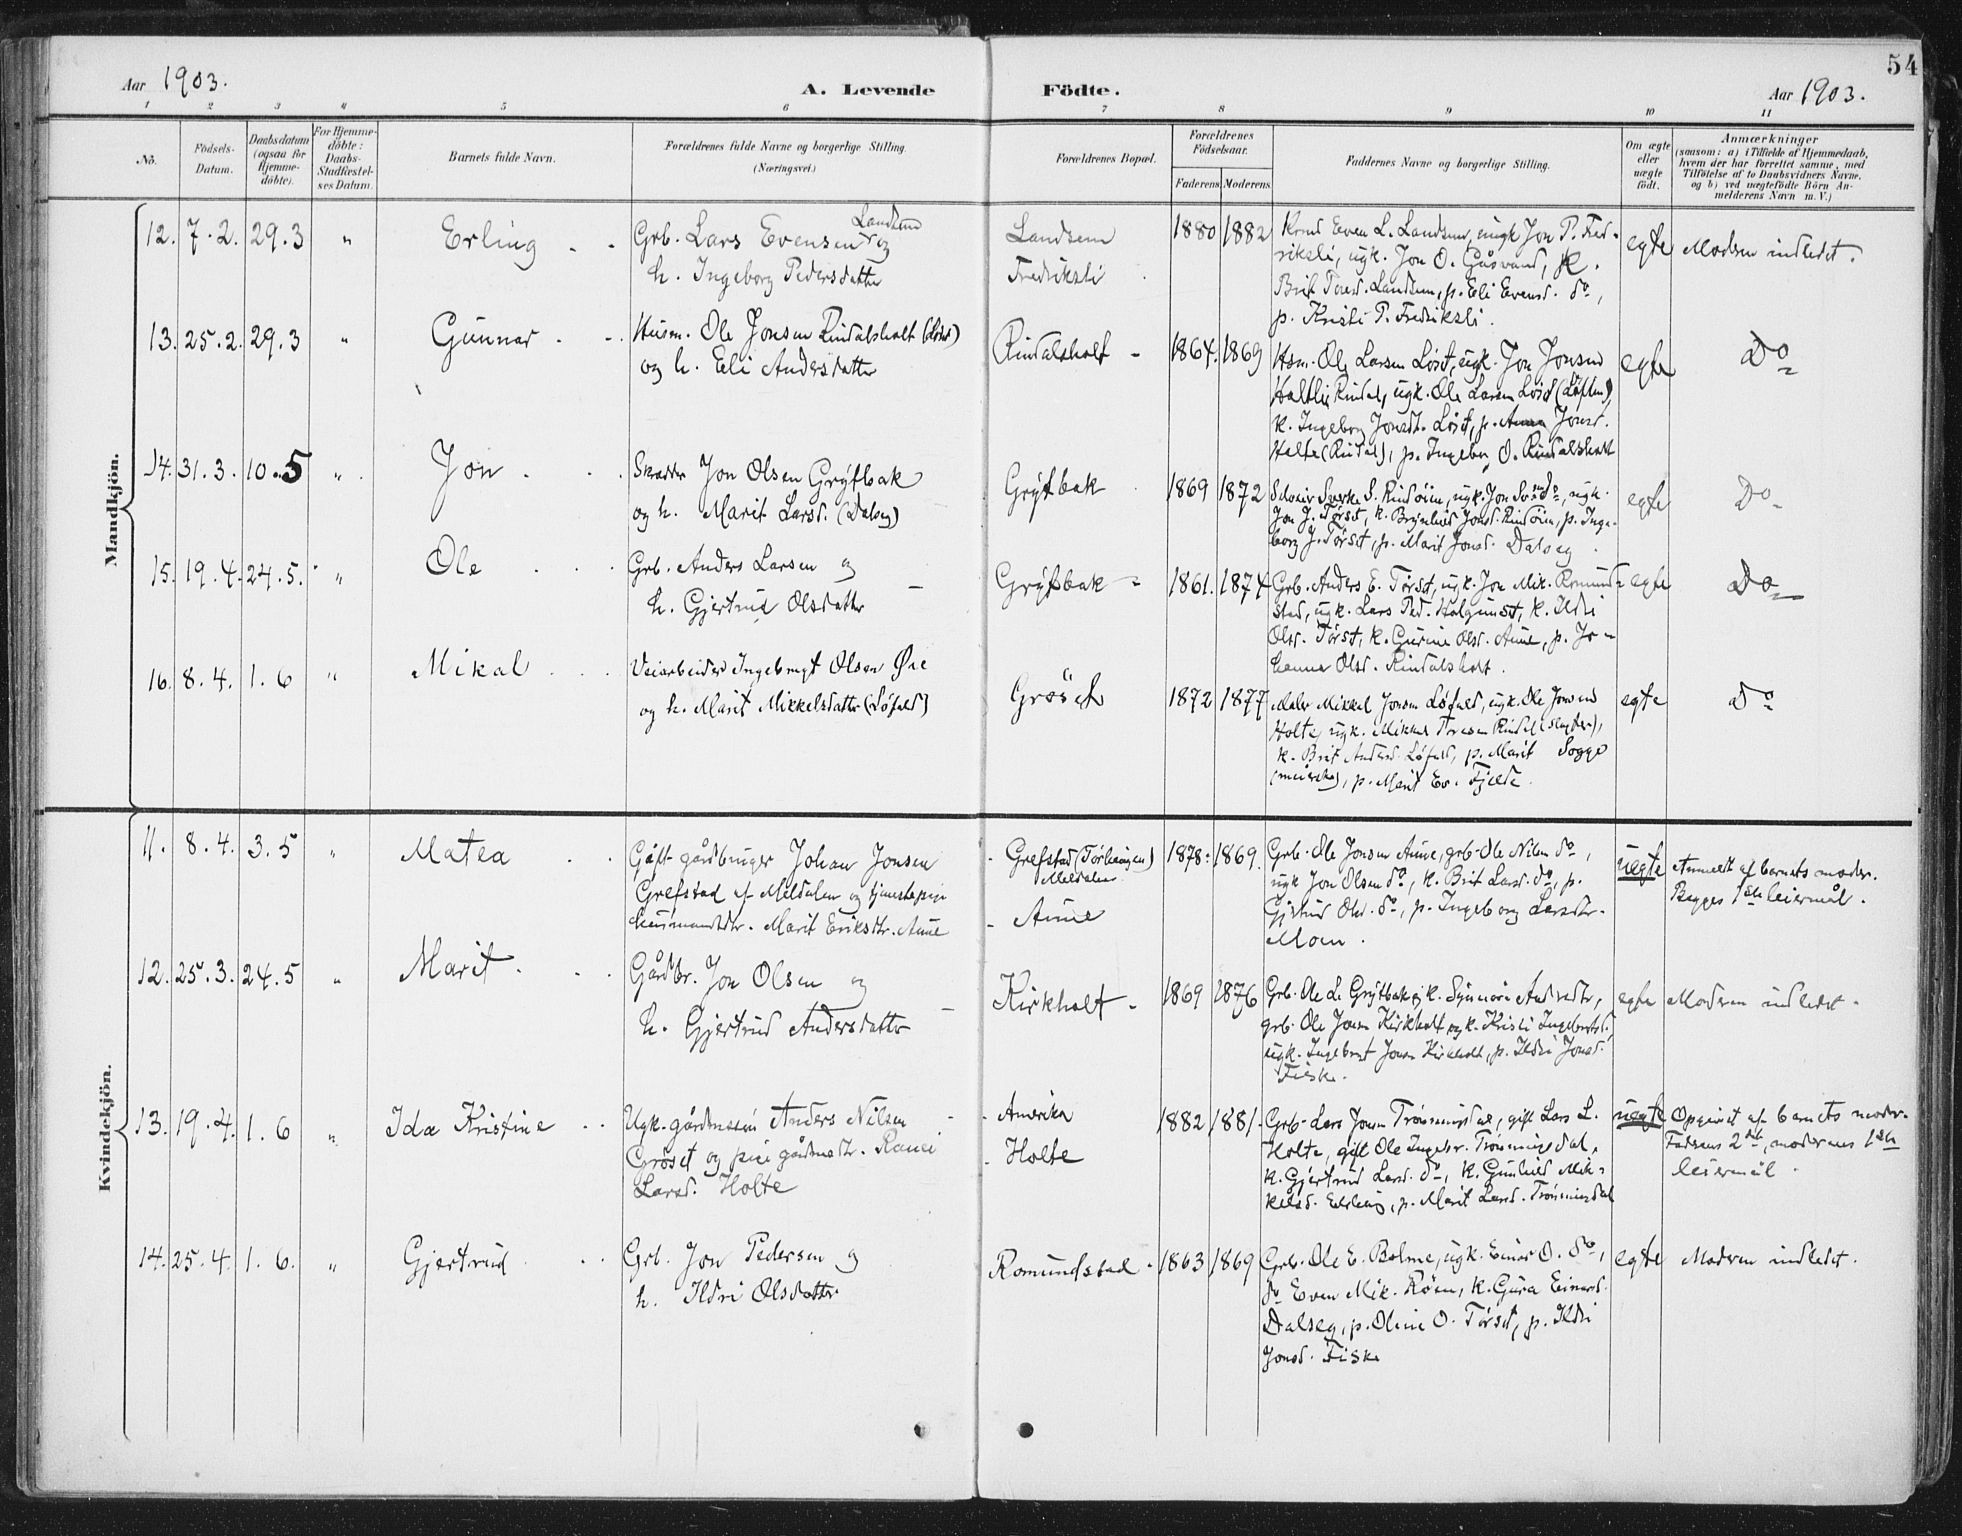 54
Aar 1903. A. Levende Födte. Aar 1903.
1 2 3 4 5 6 7 8 9 10 11
No.
Födsels-
Datum.
Daabsdatum
(ogsaa for
Hjemme-
döbte).
For Hjemme-
döbte:
Daabs-
Stadfæstel-
ses Datum.
Barnets fulde Navn.
Forældrenes fulde Navne og borgerlige Stilling.
(Næringsvei.)
Forældrenes Bopæl.
Forældrenes
Födselsaar.
Faderens Moderens
Faddernes Navne og borgerlige Stilling.
Om ægte
eller
uægte
födt.
Anmærkninger
(saasom: a) i Tilfælde af Hjemmedaab,
hvem der har forrettet samme, med
Tilföielse af to Daabsvidners Navne.
og b) ved uægtefödte Börn An-
melderens Navn m. V.)
Mandkjön.
12. 7.2. 29.3 " Erling
Grb. Lars Evensen Landsem og
h. Ingeborg Pedersdatter
Landsem
Fredriksli
1880 1882
Even L. Landsem, ungk Jon P. Fred-
riksli, ugk. Jon O. Gåsvand, k.
Brit Toresd. Landsem, p. Eli Evensd. do,
p. Kristi P. Fredriksli.
egte Modren indledet.
13. 25.2. 29.3 " Gunnar
Husm. Ole Jonsen Rindalsholt (Løset)
og h. Eli Andersdatter
Rindalsholt
1864. 1869
Hsm. Ole Larsen Løset, ugk. Jon Jonsen
Rindal, ugk. Ole Larsen Løset (Løften),
k. Ingeborg Jonsdt. Løset, p. Anne Jonsd.
Holte (Rindal), p. Ingebor O. Rindalsholt
egte Do
14. 31.3. 10.5 " Jon
Skradder Jon Olsen Grytbak
og h. Marit Larsd. (Dalseg)
Grytbak
1869 1872
Selveier Sverke S. Rindöien, ugk. Jon do, ugk.
Jon J. Törset, k. Brynhild Jonsd. Rindöien, p. Inge-
borg J. Törset, p. Marit Jonsd. Dalseg.
egte Do
15. 19.4. 24.5. " Ole
Grb. Anders Larsen og
h. Gjertrud Olsdatter
Grytbak
1861. 1874
Grb. Anders E. Törset, ugk. Jon Mik. Romund-
stad, ugk. Lars Ped. k. Ildri
Olsd. Törset, k. Gurine Olsd. Aune, p. Jo-
hanna Olsd. Rindalsholt.
egte Do
16. 8.4. 1.6 " Mikal
Veiarbeider Ingebrigt Olsen Øie
og h. Marit Mikkelsdatter (Løfald)
Gröset
1872 1877
Maler Mikkel Jonsen Løfald, ugk. Ole Jonsen
Holte, ugk. Mikkel Toresen Rindal (slagter),
k. Brit Andersd. Løfald, p. Marit Sogge
(meierske), p. Marit Ev. Fjelde.
egte Do
Kvindekjön.
11. 8.4. 3.5 " Matea
Gift gårdbruger Johan Jonsen
Grefstad af Meldalen og tjenestepige
husmandsdtr. Marit Eriksdtr. Aune
Grefstad
Meldalen
Aune
1878. 1869.
Grb. Ole Jonsen Aune, grb. Ole Nilsen do,
ugk Jon Olsen do, k. Brit Larsd. do, p.
Gjertrud Olsd. do, p. Ingeborg Larsdtr.
Moen.
uegte Anmeldt af barnets moder.
Begges 1ste leiermål.
12. 25.3. 24.5 " Marit
Gårdbr. Jon Olsen og
h. Gjertrud Andersdatter
Kirkholt
1869 1876
Grb. Ole L. Grytbak og k. Synnöve Andersdtr,
grb. Ole Jonsen Kirkholt og k. Kristi Ingebrigtsd.,
ugk. Ingebrigt Jonsen Kirkholt, p. Ildri Jonsd.
Fiske.
egte Modren indledet.
13. 19.4. 1.6 " Ida Kristine
Ugk. gårdmssön Anders Nilsen
Gröset og pige gårdmsdtr. Ranei
Larsd. Holte
Amerika
Holte
1882 1881.
Grb. Lars Jonsen Trönningsdal, gift Lars L.
Holte, gift Ole Ingebr. Trönningsdal,
k. Gjertrud Larsd. do, k. Gunhild Mik-
kelsd. p. Marit Larsd. Trönningsdal
uegte Opgivet af barnets moder.
Faderens 2det, moderens 1ste
leiermål.
14. 25.4. 1.6. " Gjertrud
Grb. Jon Pedersen og
h. Ildri Olsdatter
Romundstad
1863 1869
Grb. Ole E. Bolme, ugk. Einar O. do,
do Even Mik. Röen, k. Gura Einarsd.
Dalseg, p. Oline O. Törset, p. Ildri
Jonsd. Fiske
egte Modren indledet.